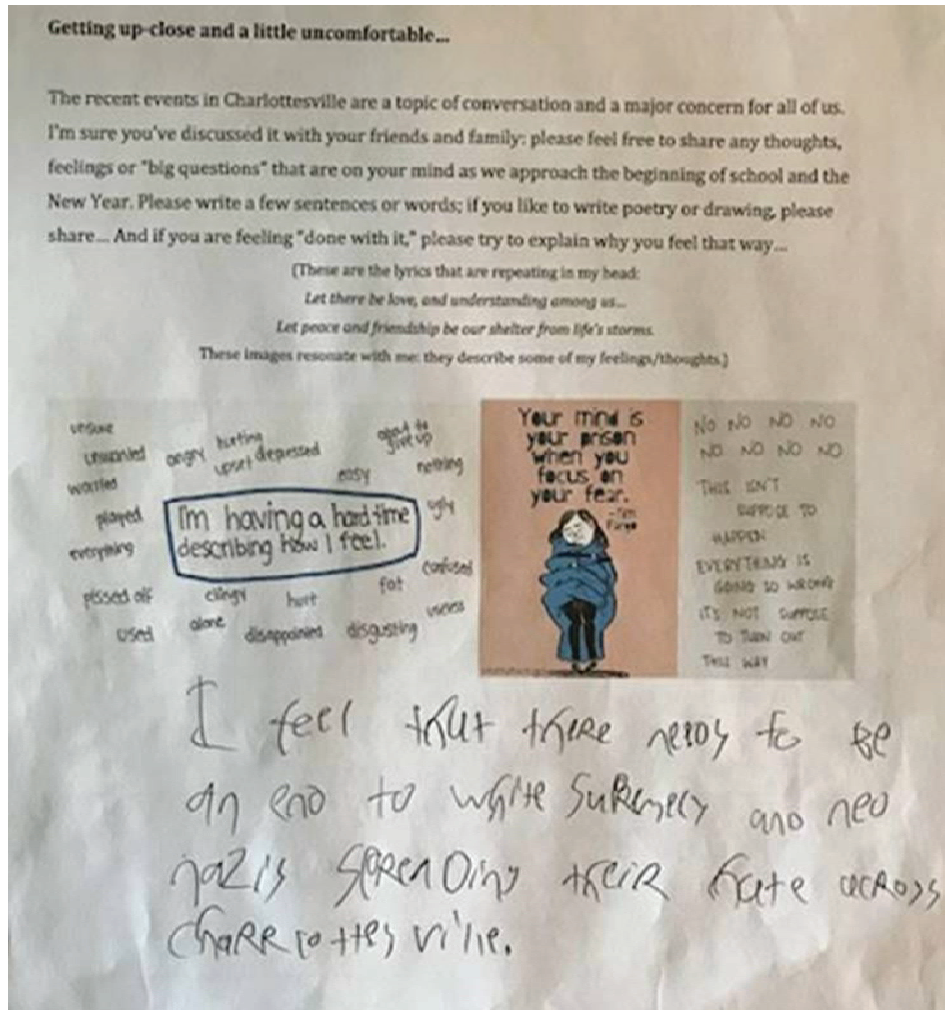 Getting up-close and a little uncomfortable...
The recent events in Charlottesville are a topic of conversation and a major concern for all of us.
I'm sure you've discussed it with your friends and family; please feel free to share any thoughts,
feelings or "big questions" that are on your mind as we approach the beginning of school and the
New Year. Please write a few sentences or words; if you like to write poetry or drawing, please
share... And if you are feeling "done with it," please try to explain why you feel that way...
(These are the lyrics that are repeating in my head:
Let there be love, and understanding among us...
Let peace and friendship be our shelter from life's storms.
These images resonate with me: they describe some of my feelings/thoughts.)
unsure
unwanted
worried
played
everything
pissed off
used
angry
hurting
upset
depressed
easy
about to
give up
nothing
ugly
I'm having a hard time
describing how I feel.
confused
fat
clingy
hurt
useless
alone
disappointed
disgusting
Your mind is
your prison
when you
focus on
your fear.
NO NO NO NO
NO NO NO NO
THIS ISN'T
SUPPOSE TO
HAPPEN
EVERYTHING IS
GOING SO WRONG
IT'S NOT SUPPOSE
TO TURN OUT
THIS WAY
I feel that there needs to be
an end to white supremecy and neo
nazis spreading their hate across
charrlottesville.